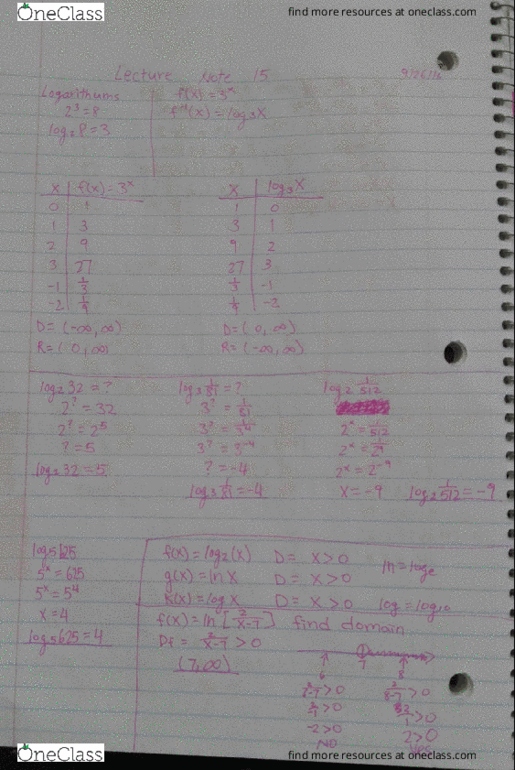 OneClass
find more resources at oneclass.com
Lecture Note 15
9/26/16
Logarithums
2³=8
log₂8=3
f(x)=3ˣ
f⁻¹(x)=log₃x
x f(x)=3ˣ
0 1
1 3
2 9
3 27
-1 1/3
-2 1/9
D=(-∞,∞)
R=(0,∞)
x log₃x
1 0
3 1
9 2
27 3
1/3 -1
1/9 -2
D=(0,∞)
R=(-∞,∞)
log₂32=?
2^?=32
2^?=2⁵
?=5
log₂32=5
log₃1/81=?
3^?=1/81
3^?=1/3⁴
3^?=3⁻⁴
?=-4
log₃1/81=-4
log₂1/512
2ˣ=1/512
2ˣ=1/2⁹
2ˣ=2⁻⁹
x=-9 log₂1/512=-9
5ˣ=625
5ˣ=5⁴
x=4
log₅625=4
f(x)=log₂(x) D= x>0
g(x)=ln x D= x>0
k(x)=log x D= x>0
ln=logₑ
log=log₁₀
f(x)=ln[2/x-7] find domain
Df= 2/x-7>0
(7,∞)
7
6
-2>0
NO
8
2/8-7>0
2>0
Yes
OneClass
find more resources at oneclass.com